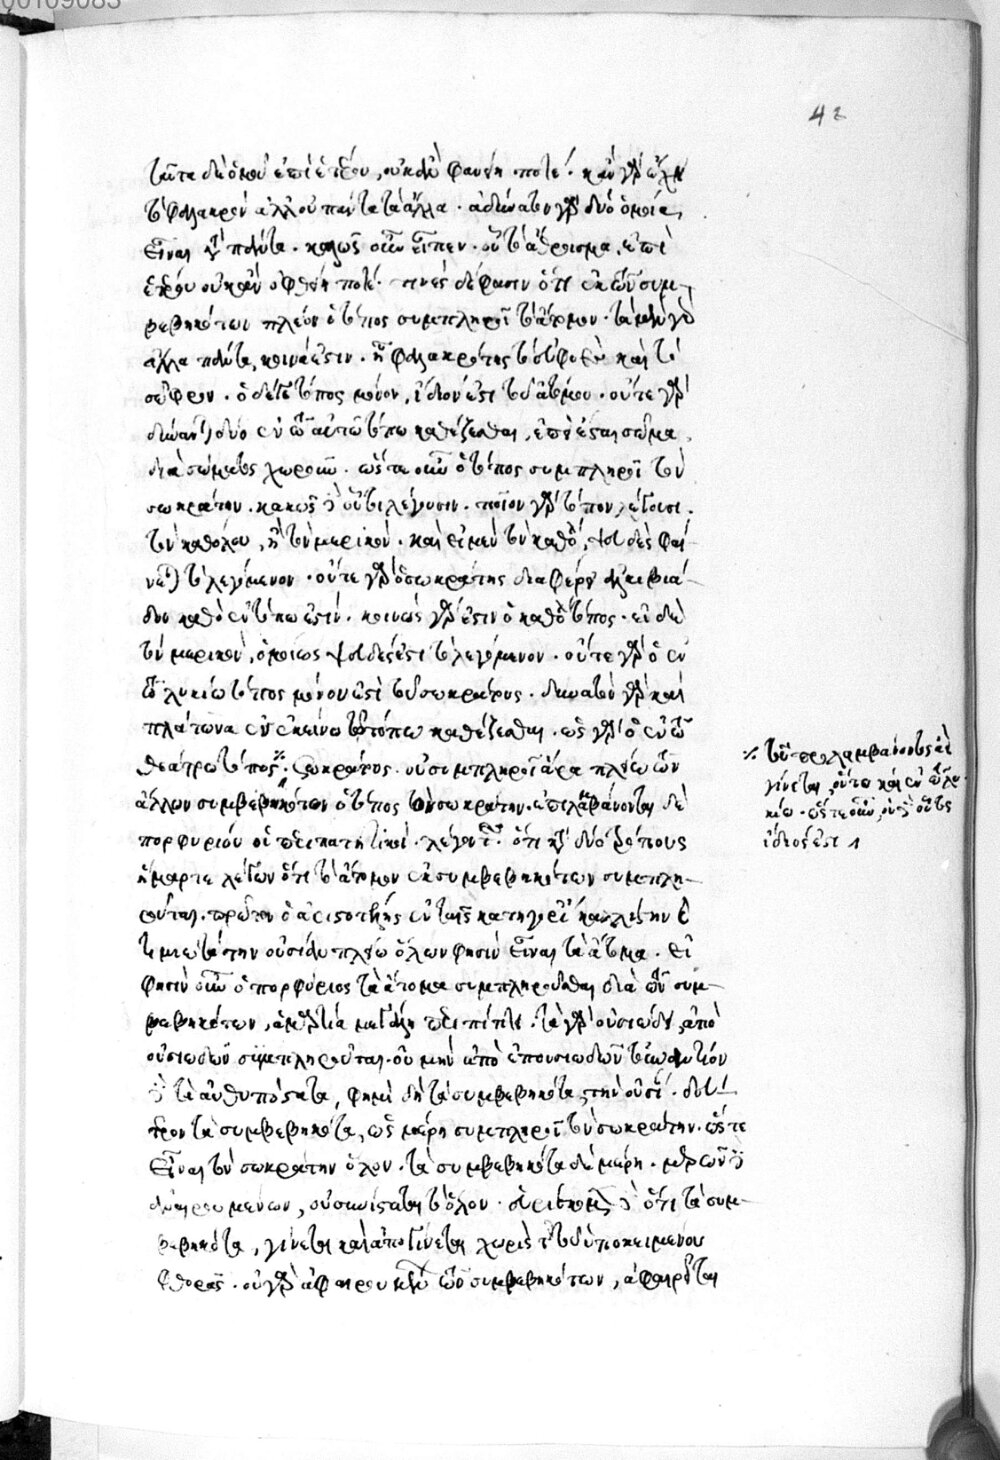 42
ταῦτα δὲ ὁμοῦ ἐπὶ ἑτέρου, οὐκ ἂν φανείη ποτέ· κἂν γὰρ ἔχῃ
τὸ φαλακρὸν ἀλλ' οὐ πάντα τὰ ἄλλα· ἀδύνατον γὰρ δύο ὅμοια
εἶναι κατὰ πάντα· καλῶς οὖν εἶπεν· οὗ τὸ ἄθροισμα, ἐπὶ
ἑτέρου οὐκ ἂν ὀφθείη ποτέ· τινὲς δέ φασιν ὅτι ἐκ τῶν συμ-
βεβηκότων πλέον ὁ τόπος συμπληροῖ τὸ ἄτομον· τὰ μὲν γὰρ
ἄλλα πάντα, κοινά ἐστιν· ἡ φαλακρότης τὸ καὶ τὸ
ὁ δέ γε τόπος μόνον, ἴδιόν ἐστι τοῦ ἀτόμου· οὔτε γὰρ
δύνανται δύο ἐν τῶ αὐτῶ τόπω καθέζεσθαι, ἐπεὶ ἔσται σῶμα
διὰ σώματος χωροῦν· ὥστε οὖν ὁ τόπος συμπληροῖ τὸν
σωκράτην· κακῶς δὲ τοῦτο λέγουσιν· ποῖον γὰρ τόπον λέγουσι·
τὸν καθόλου, ἢ τὸν μερικόν· καὶ εἰ μὲν τὸν καθόλου, ψευδὲς φαί-
νεται τὸ λεγόμενον· οὔτε γὰρ ὁ σωκράτης διαφέρει ἀλκιβιά-
δου καθὸ ἐν τόπω ἐστίν· κοινὸς γάρ ἐστιν ὁ καθόλου τόπος· εἰ δὲ
τὸν μερικὸν, ὁμοίως ψευδές ἐστι τὸ λεγόμενον· οὔτε γὰρ ὁ ἐν
τῶ λυκίω τόπος μόνου ἐστὶ τοῦ σωκράτους· δυνατὸν γὰρ καὶ
πλάτωνα ἐν ἐκείνω τῶ τόπω καθέζεσθαι· ὡς γὰρ ὁ ἐν τῶ
θεάτρω τόπος ⁒ σωκράτους· οὐ συμπληροῖ ἄρα πλέω τῶν
ἄλλων συμβεβηκότων ὁ τόπος τὸν σωκράτην· ἐπιλαμβάνονται δὲ
πορφυρίου οἱ περιπατητικοί· λέγοντες· ὅτι κατὰ δύο τρόπους
ἥμαρτε λέγων ὅτι τὸ ἄτομον ἐκ συμβεβηκότων συμπλη-
ροῦται· πρῶτον ὁ ἀριστοτέλης ἐν ταῖς κατηγορίαις καλλίστην καὶ
τιμιωτάτην οὐσίαν πλέω ὅλων φησὶν εἶναι τὰ ἄτομα· εἰ
φησὶν οὖν ὁ πορφύριος τὰ ἄτομα συμπληροῦσθαι διὰ τῶν συμ-
βεβηκότων, ἁμαρτία μεγάλη περιπίπτει· τὰ γὰρ οὐσιώδη ἀπὸ
οὐσιωδῶν συμπληροῦται· οὐ μὴν ἀπὸ ἐπουσιωδῶν τοὐναντίον
δὲ τὰ ἀνθυπόστατα, φημὶ δὴ τὰ συμβεβηκότα, τὴν οὐσίαν· δεύ-
τερον τὰ συμβεβηκότα, ὡς μέρη συμπληροῖ τὸν σωκράτην· ὥστε
εἶναι τὸν σωκράτην ὅλον· τὰ συμβεβηκότα δὲ μέρη· μερῶν δὲ
ἀναιρουμένων, οὐ συνίσταται τὸ ὅλον· εὑρίσκομεν δὲ ὅτι τὰ συμ-
βεβηκότα, γίνεται καὶ ἀπογίνεται χωρὶς τῆς τοῦ ὑποκειμένου
φθορᾶς· οὐ γὰρ ἀφαιρουμένων τῶν συμβεβηκότων, ἀφαιρεῖται
⁒ τοῦ προλαμβάνοντος ἀεὶ
γίνεται, οὕτω καὶ ἐν τῶ λυ-
κίω· ὥστε οὖν, οὐδὲ οὗτος
ἴδιός ἐστι